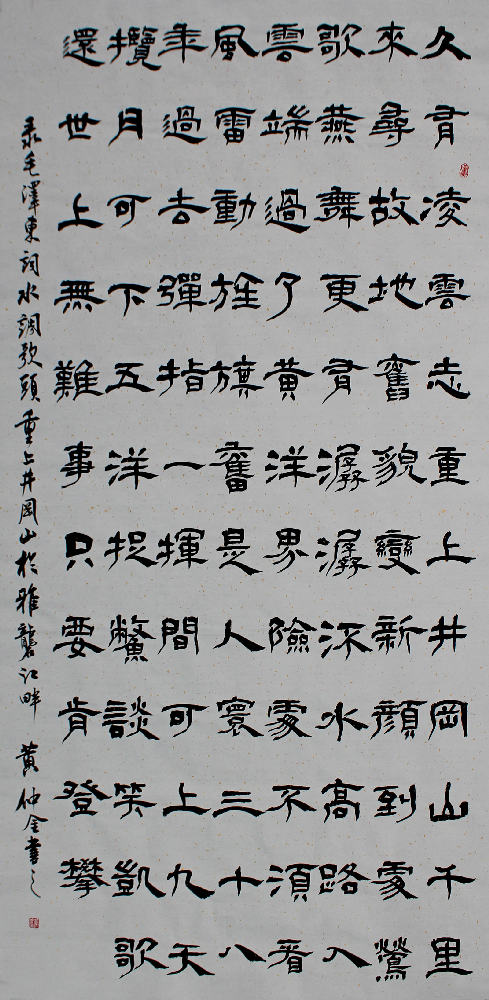 久有凌雲志重上井岡山千里
來尋故地舊貌變新顏到處鶯
歌燕舞更有潺潺流水高路入
雲端過了黃洋界險處不須看
風雷動旌旗奮是人寰三十八
年過去彈指一揮間可上九天
攬月可下五洋捉鱉談笑凱歌
還世上無難事只要肯登攀
录毛澤東詞水調歌頭重上井岡山於雅礱江畔 黃仲金書之